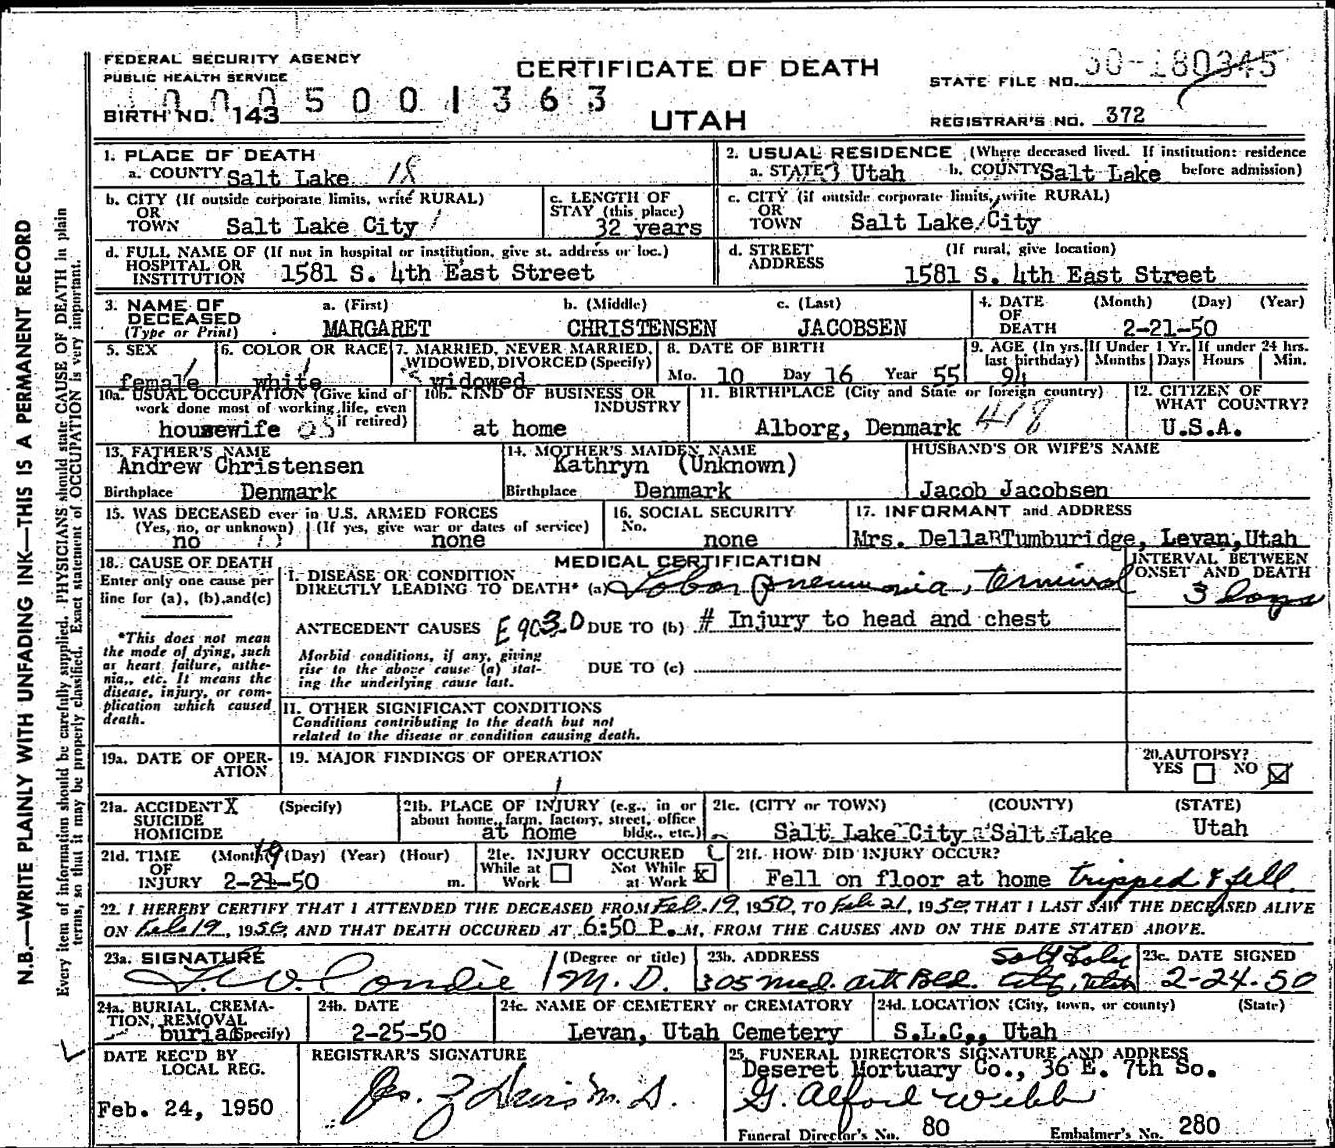 FEDERAL SECURITY AGENCY
PUBLIC HEALTH SERVICE
CERTIFICATE OF DEATH
UTAH
STATE FILE NO. 50-180345
0005001363
BIRTH NO. 143
REGISTRAR'S NO. 372
N.B.—WRITE PLAINLY WITH UNFADING INK—THIS IS A PERMANENT RECORD
Every item of information should be carefully supplied. PHYSICIANS should state CAUSE OF DEATH in plain
terms, so that it may be properly classified. Exact statement of OCCUPATION is very important.
1. PLACE OF DEATH
a. COUNTY Salt Lake 18
2. USUAL RESIDENCE (Where deceased lived. If institution: residence
a. STATE Utah b. COUNTY Salt Lake before admission)
b. CITY (If outside corporate limits, write RURAL)
OR
TOWN Salt Lake City
c. LENGTH OF
STAY (this place)
32 years
c. CITY (if outside corporate limits, write RURAL)
OR
TOWN Salt Lake City
d. FULL NAME OF (If not in hospital or institution, give st. address or loc.)
HOSPITAL OR
INSTITUTION 1581 S. 4th East Street
d. STREET (If rural, give location)
ADDRESS
1581 S. 4th East Street
3. NAME OF a. (First) b. (Middle) c. (Last)
DECEASED
(Type or Print) MARGARET CHRISTENSEN JACOBSEN
4. DATE (Month) (Day) (Year)
OF
DEATH 2-21-50
5. SEX
female
6. COLOR OR RACE
white
7. MARRIED, NEVER MARRIED,
WIDOWED, DIVORCED (Specify)
widowed
8. DATE OF BIRTH
Mo. 10 Day 16 Year 55
9. AGE (In yrs. If Under 1 Yr. If under 24 hrs.
last birthday) Months Days Hours Min.
94
10a. USUAL OCCUPATION (Give kind of
work done most of working life, even
if retired)
housewife 05
10b. KIND OF BUSINESS OR
INDUSTRY
at home
11. BIRTHPLACE (City and State or foreign country)
Alborg, Denmark 418
12. CITIZEN OF
WHAT COUNTRY?
U.S.A.
13. FATHER'S NAME
Andrew Christensen
Birthplace Denmark
14. MOTHER'S MAIDEN NAME
Kathryn (Unknown)
Birthplace Denmark
HUSBAND'S OR WIFE'S NAME
Jacob Jacobsen
15. WAS DECEASED ever in U.S. ARMED FORCES
(Yes, no, or unknown) (If yes, give war or dates of service)
no none
16. SOCIAL SECURITY
No.
none
17. INFORMANT and ADDRESS
Mrs. Della Tumburidge, Levan, Utah
18. CAUSE OF DEATH
Enter only one cause per
line for (a), (b), and (c)
*This does not mean
the mode of dying, such
as heart failure, asthe-
nia, etc. It means the
disease, injury, or com-
plication which caused
death.
MEDICAL CERTIFICATION
I. DISEASE OR CONDITION
DIRECTLY LEADING TO DEATH* (a) Lobar pneumonia, terminal
INTERVAL BETWEEN
ONSET AND DEATH
3 days
ANTECEDENT CAUSES E903.0 DUE TO (b) # Injury to head and chest
Morbid conditions, if any, giving
rise to the above cause (a) stat-
ing the underlying cause last.
DUE TO (c)
II. OTHER SIGNIFICANT CONDITIONS
Conditions contributing to the death but not
related to the disease or condition causing death.
19a. DATE OF OPER-
ATION
19. MAJOR FINDINGS OF OPERATION
20. AUTOPSY?
YES NO X
21a. ACCIDENT X (Specify)
SUICIDE
HOMICIDE
21b. PLACE OF INJURY (e.g., in or
about home, farm, factory, street, office
bldg., etc.)
at home
21c. (CITY or TOWN) (COUNTY) (STATE)
Salt Lake City Salt Lake Utah
21d. TIME (Month) (Day) (Year) (Hour)
OF
INJURY 2-21-50 m.
19
21e. INJURY OCCURED
While at Work
Not While at Work X
21f. HOW DID INJURY OCCUR?
Fell on floor at home tripped & fell
22. I HEREBY CERTIFY THAT I ATTENDED THE DECEASED FROM Feb. 19, 1950, TO Feb 21, 1950, THAT I LAST SAW THE DECEASED ALIVE
ON Feb 19, 1950, AND THAT DEATH OCCURED AT 6:50 P.M, FROM THE CAUSES AND ON THE DATE STATED ABOVE.
23a. SIGNATURE (Degree or title)
Condie M.D.
23b. ADDRESS
305 Med. Arts Bld. Salt Lake City, Utah
23c. DATE SIGNED
2-24-50
24a. BURIAL, CREMA-
TION, REMOVAL
(Specify)
burial
24b. DATE
2-25-50
24c. NAME OF CEMETERY or CREMATORY
Levan, Utah Cemetery
24d. LOCATION (City, town, or county) (State)
S.L.C., Utah
DATE REC'D BY
LOCAL REG.
Feb. 24, 1950
REGISTRAR'S SIGNATURE
25. FUNERAL DIRECTOR'S SIGNATURE AND ADDRESS
Deseret Mortuary Co., 36 E. 7th So.
G. Alford Webb
Funeral Director's No. 80 Embalmer's No. 280